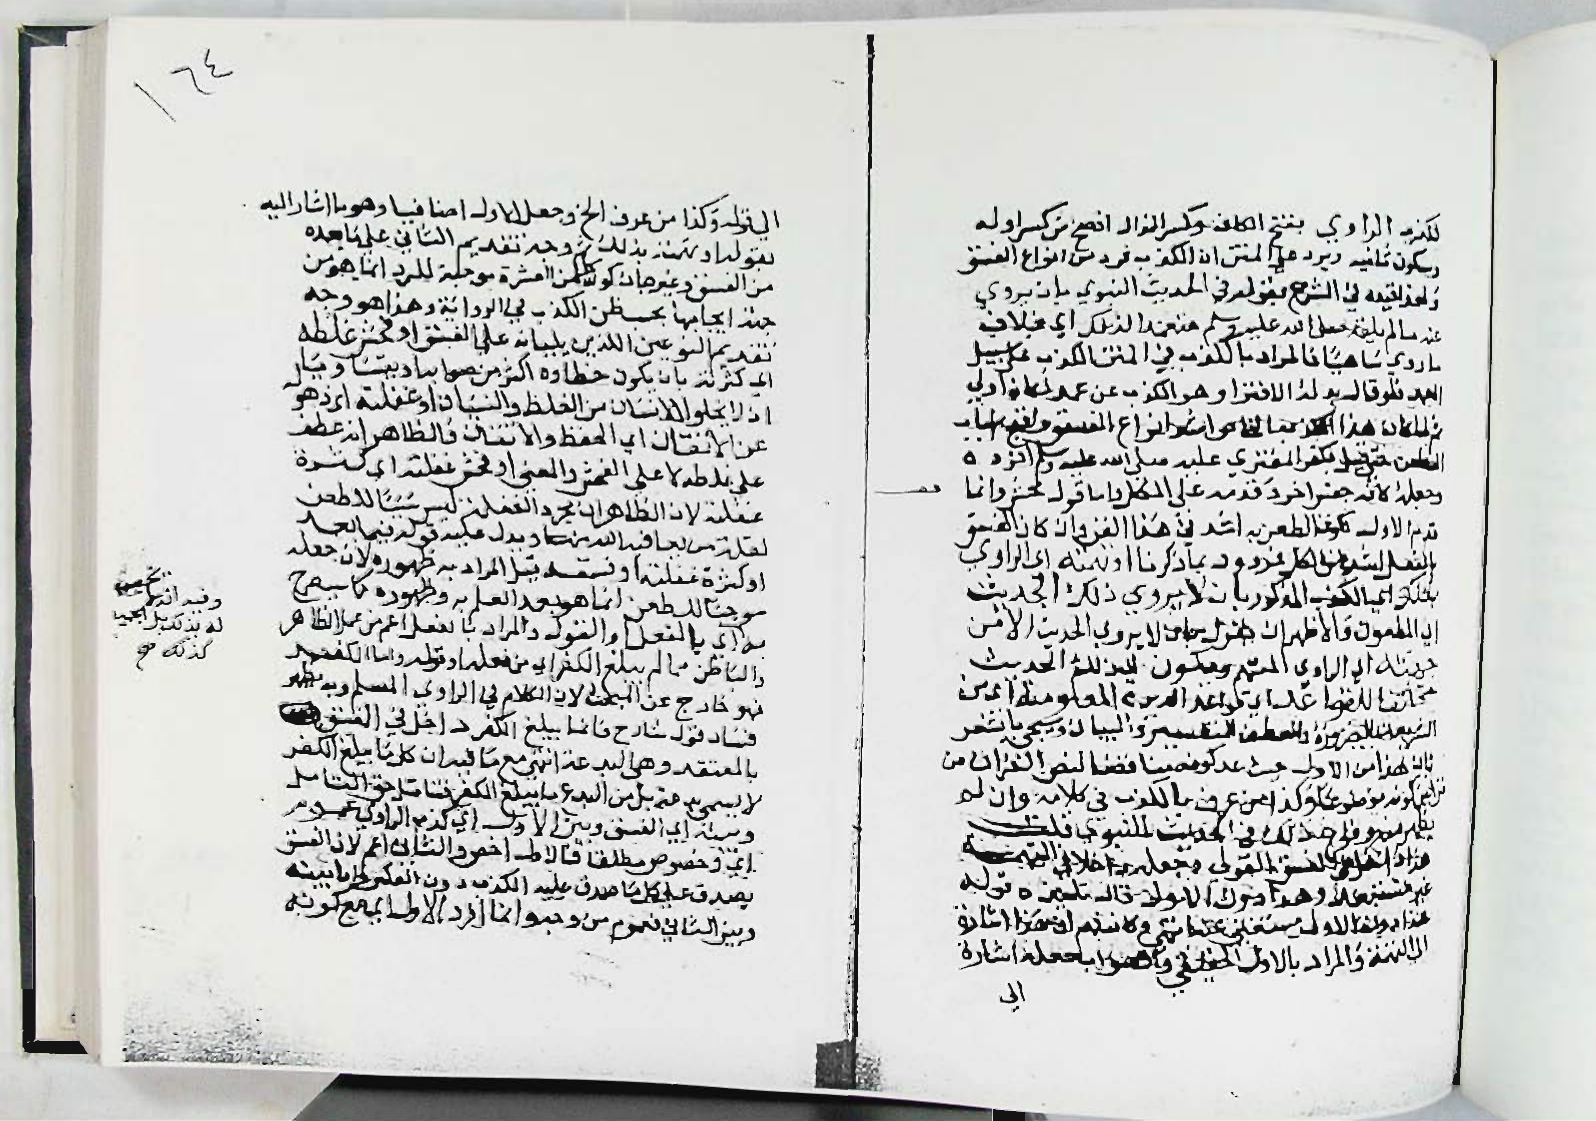 لكذب الراوي بفتح الكاف وكسر الذال افصح من كسر اوله
وسكون ثانيه ويرد على المتن ان الكذب فرد من انواع الفسق
ولهذا قيده في الشرح بقوله في الحديث النبوي بان يروي
عنه ما لم يقله صلى الله عليه وسلم متعمدا لذلك اي بخلاف
ما روي ساهيا فالمراد بالكذب في المتن الكذب على سبيل
العمد فلو قال بدله الافترا وهو الكذب عن عمد لكان اولى
ثم لما كان هذا اشد انواع الفسق
الطعن حتى قيل بكفر المفتري عليه صلى الله عليه وسلم افرده
وجعله لانه جنس اخر وقدمه على الكل واما قوله محشي وانما
قدم الاول لكون الطعن به اشد في هذا الفن وان كان الفسق
بالفعل اشد من الكل فمردود بما ذكرنا او تهمته اي الراوي
بذلك اي الكذب المذكور بان لا يروي ذلك الحديث
اي المطعون والاظهر ان يقول بان لا يروي الحديث الا من
جهته اي الراوي المتهم ويكون اي ذلك الحديث
مخالفا للقواعد اي قواعد الدين المعلومة اي من
الشريعة بالضرورة والعطف للتفسير والبيان وسيجي بالشعر
بان هذا من الاول حيث عد كونه مناقضا لنص القران من
قراين كونه موضوعا وكذا من عرف بالكذب في كلامه وان لم
يظهر منه وقوع ذلك في الحديث النبوي قلت
هذا داخل في الفسق القولي وجعله داخلا في التهمة
غير مستقيم وهذا دون الاول قال تلميذه قوله
هذا دون الاول مستغنى عنه انتهى وكانه فهم ان هذا اشارة
الى التهمة والمراد بالاول الحقيقي والصواب جعله اشارة
الى
١٦٤
الى قوله وكذا من عرف الخ وجعل الاول اضافيا وهو ما اشار اليه
بقوله او تهمته بذلك ثم وجه تقديم الثاني على ما بعده
من الفسق وغيره بان كون هذه العشرة موجبة للرد انما هو من
جهة ايجابها بحسب ظن الكذب في الرواية وهذا هو وجه
تقديم النوعين اللذين يليانه على الفسق او فحش غلطه
اي كثرته بان يكون خطاوه اكثر من صوابه او يتساويان
اذ لا يخلو الانسان من الغلط والنسيان او غفلته اي ذهوله
عن الاتقان اي الحفظ والاتقان فالظاهر انه عطف
على غلطه لا على الفحش والمعنى او فحش غفلته اي كثرة
غفلته لان الظاهر ان مجرد الغفلة ليس سببا للطعن
لقلة من يعافيه الله منها ويدل عليه قوله فيما بعد
او كثرة غفلته او فسقه قيل المراد به ظهوره لان جعله
موجبا للطعن انما هو بعد العلم به وظهوره كما سيصرح
به اي بالفعل او القول والمراد بالفعل اعم من عمل الظاهر
والباطن مما لم يبلغ الكفر اي من فعله او قوله واما الكفر
فهو خارج عن المبحث لان الكلام في الراوي المسلم وبه يظهر
فساد قول شارح فانما يبلغ الكفر داخل في الفسق
بالمعتقد وهي البدعة انتهى مع ما فيه ان كل ما يبلغ الكفر
لا يسمى بدعة بل من البدع ما يبلغ الكفر فتامل حق التامل
وبينه اي الفسق وبين الاول اي كذب الراوي عموم
اي وخصوص مطلقا فالاول اخص والثاني اعم لان الفسق
يصدق على كل ما صدق عليه الكذب دون العكس واما بينه
وبين الثاني فعموم من وجه وانما افرد الاول اي مع كونه
وفيه انه
له بذلك بل
كذلك صح